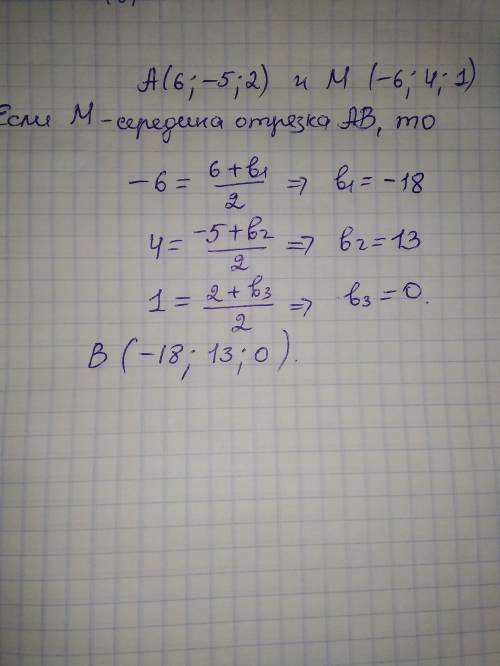 A(6;-5;2) и M (-6;4;1)
Если M-середина отрезка AB, то
-6 = \frac{6+b_1}{2} => b_1 = -18
4 = \frac{-5+b_2}{2} => b_2 = 13
1 = \frac{2+b_3}{2} => b_3 = 0.
B (-18; 13; 0).